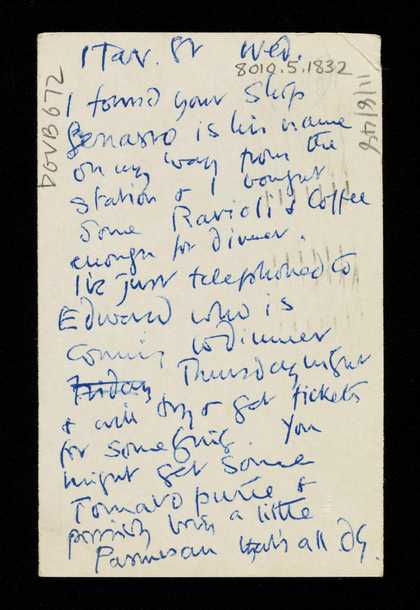 1 Tav. St Wed.
8010.5.1832
DGVB672
11/8/48
I found your shop
is his name
on my way from the
station & I bought
some Ravioli & Coffee
enough for dinner.
I've just telephoned to
Edward who is
coming to dinner
Friday Thursday night
& will try & get tickets
for something. You
might get some
Tomato purée &
possibly brin a little
Parmesan that's all DG.